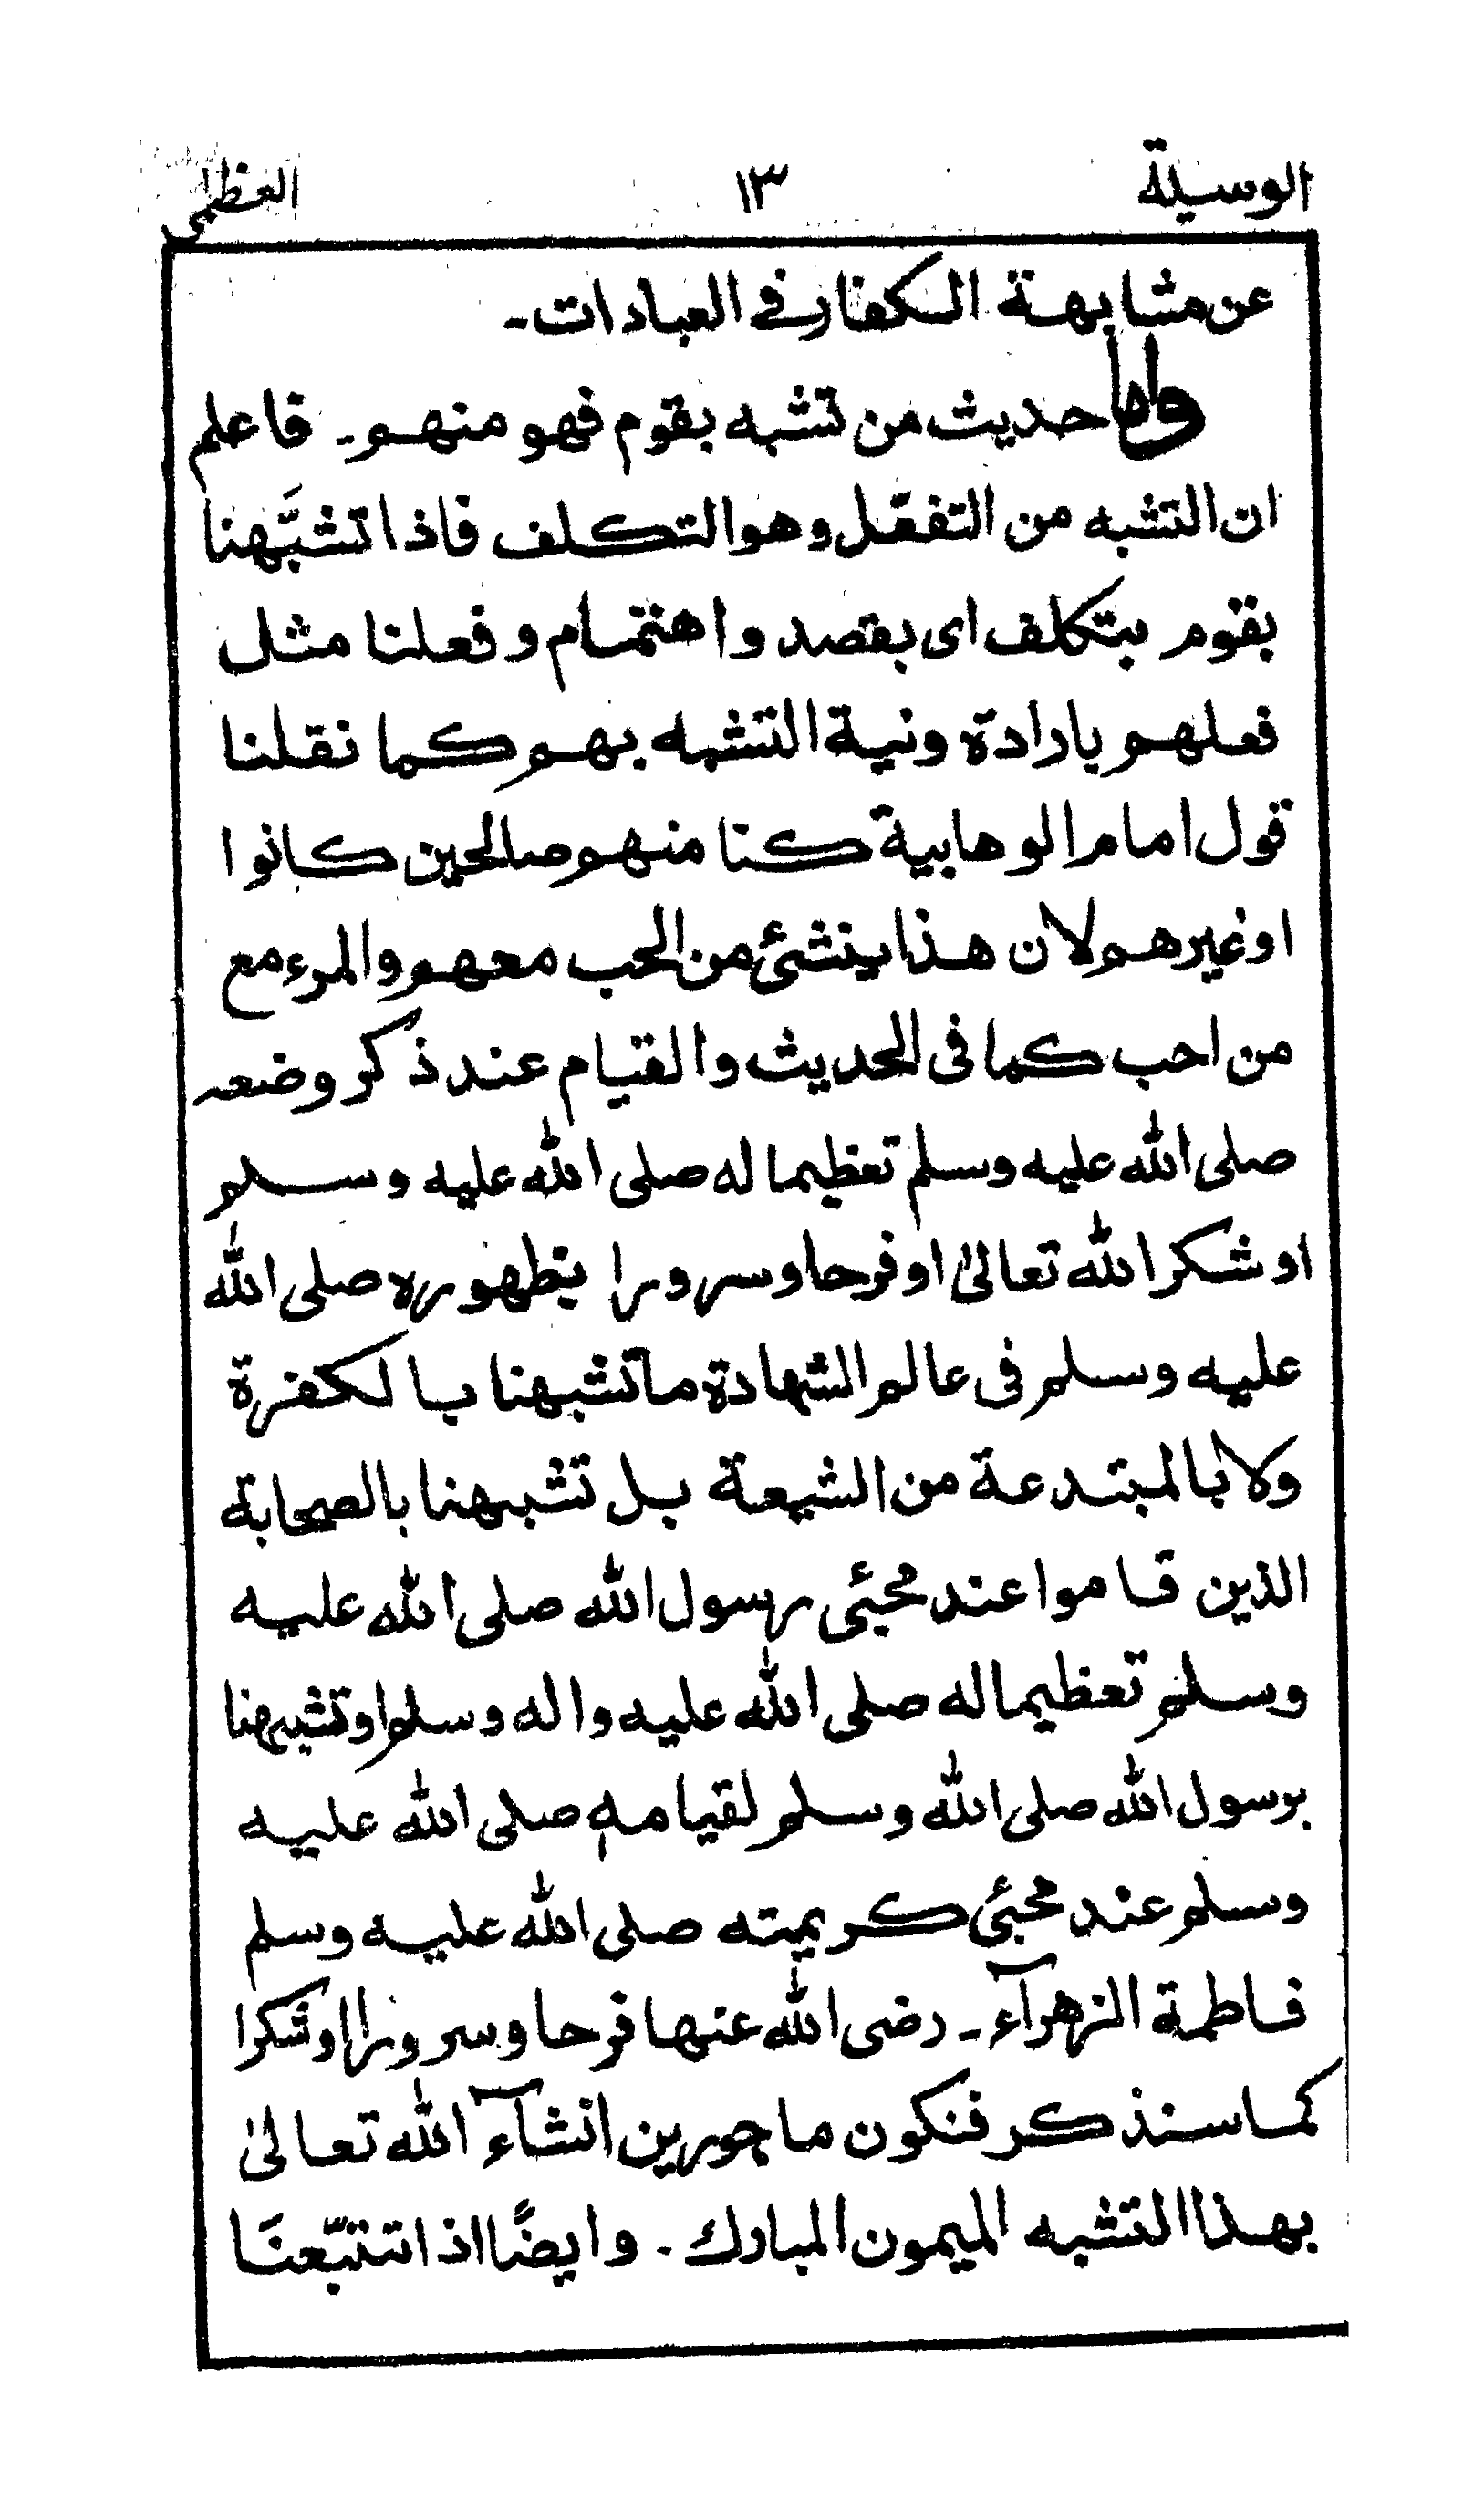 الوسيلة ١٣ العظمى
عن مشابهة الكفار فى العبادات۔
واما حديث من تشبه بقوم فهو منهم۔ فاعلم
ان التشبه من التفعّل وهو التكلف فاذا تشبَّهنا
بقوم بتكلف اى بقصد واهتمام وفعلنا مثل
فعلهم بارادة ونية التشبه بهم كما نقلنا
قول امام الوهابية كنا منهم صالحين كانوا
او غيرهم لان هذا ينشئ من الحب معهم والمرء مع
من احب كما فى الحديث والقيام عند ذكر وضعه
صلى الله عليه وسلم تعظيما له صلى الله عليه وسلم
او شكرا لله تعالىٰ او فرحا وسرورا بظهوره صلى الله
عليه وسلم فى عالم الشهادة ما تشبهنا بالكفرة
ولا بالمبتدعة من الشيعة بل تشبهنا بالصحابة
الذين قاموا عند مجئى رسول الله صلى الله عليه
وسلم تعظيما له صلى الله عليه واله وسلم او تشبهنا
برسول الله صلى الله وسلم لقيامه صلى الله عليه
وسلم عند مجئى كريمته صلى الله عليه وسلم
فاطمة الزهرآء۔ رضى الله عنها فرحا وسرورا او شكرا
كما سنذكر فنكون ماجورين انشآء الله تعالىٰ
بهذا التشبه الميمون المبارك۔ وايضًا اذا تتبّعنَا